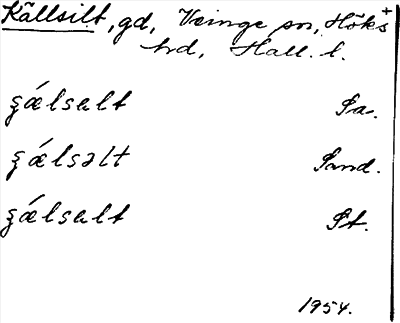 Källsilt, gd, Veinge sn, Höks +
hrd, Hall. l.
ʂǽlsalt Sa.
ʂǽlsəlt Sand.
ʂǽlsalt St.
1954.